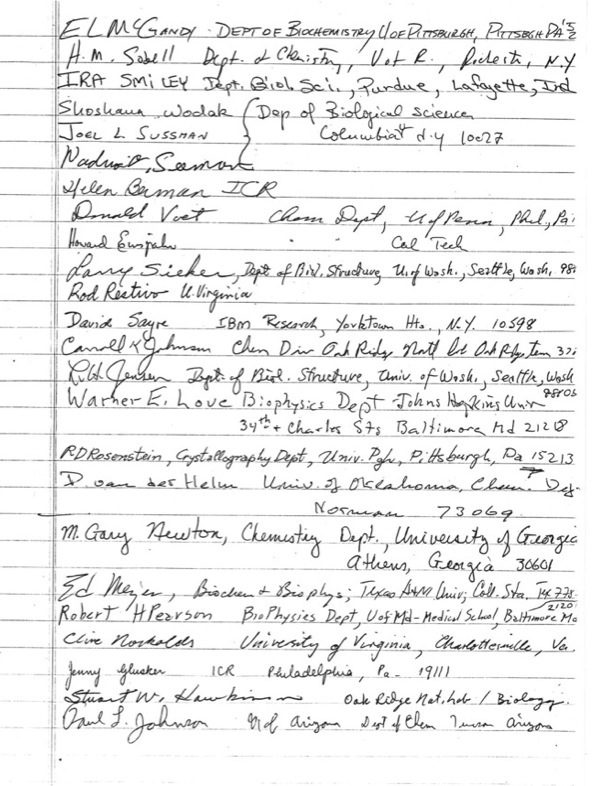 EL McGandy - DEPT OF BIOCHEMISTRY U OF PITTSBURGH, PITTSBGH PA 152
H.M. Sobell Dept. of Chemistry, U of R., Rochester, N.Y
IRA SMILEY Dept. Biol. Sci., Purdue, Lafayette, Ind
Shoshana Wodak Dep of Biological sciences
JOEL L SUSSMAN Columbia N.Y 10027
Nadrian Seeman
Helen Berman ICR
Donald Voet Chem Dept, U of Penn, Phil, Pa.
Howard Einspahr Cal Tech
Larry Sieker, Dept of Biol. Structure, U. of Wash., Seattle, Wash. 981
Rod Restivo U. Virginia
David Sayre IBM Research, Yorktown Hts., N.Y. 10598
Carroll K Johnson Chem Div Oak Ridge Natl Lab Oak Ridge, Tenn 378
L.H. Jensen Dept. of Biol. Structure, Univ. of Wash., Seattle, Wash
98105
Warner E. Love Biophysics Dept Johns Hopkins Univ
34th + Charles Sts Baltimore Md 21218
RD Rosenstein, Crystallography Dept, Univ. Pgh, Pittsburgh, Pa 15213
D. van der Helm Univ. of Oklahoma, Chem. Dep.
Norman 73069
M. Gary Newton, Chemistry Dept., University of Georgia
Athens, Georgia 30601
Ed Meyer, Biochem & Biophys; Texas A&M Univ; Coll. Sta. TX 778
21201
Robert H Pearson BioPhysics Dept, U of Md - Medical School, Baltimore Md
Clive Nockolds University of Virginia, Charlottesville, Va.
Jenny Glusker ICR Philadelphia, Pa - 19111
Stuart W. Hawkinson Oak Ridge Nat. Lab / Biology
Paul L. Johnson U of Arizona Dept of Chem Tucson Arizona